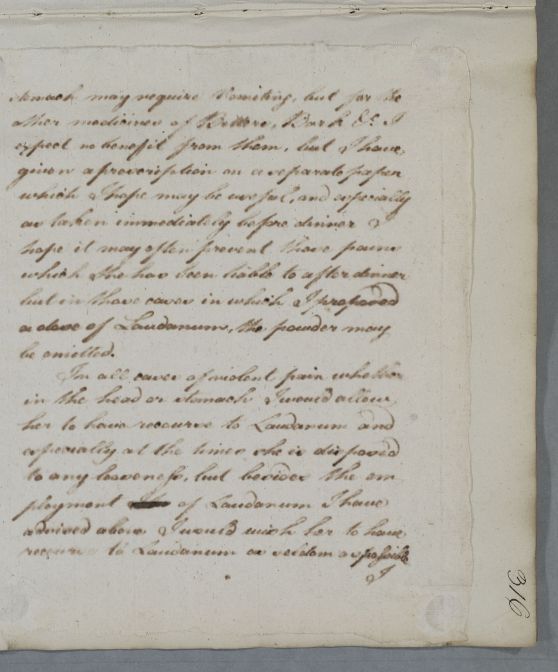 stomach may require Vomiting, but for the
other medicines of Bitters, Bark &c. I
expect no benefit from them, but I have
given a prescription on a separate paper
which I hope may be useful, and especially
as taken immediately before dinner I
hope it may often prevent those pains
which she has been liable to after dinner
but in those cases in which I proposed
a dose of Laudanum, the powder may
be omitted.
In all cases of violent pain whether
in the head or stomach I would allow
her to have recourse to Laudanum and
especially at the times she is disposed
to any looseness, but besides the em
ployment of Laudanum I have
advised above I would wish her to have
recourse to Laudanum as seldom as possible
I
316